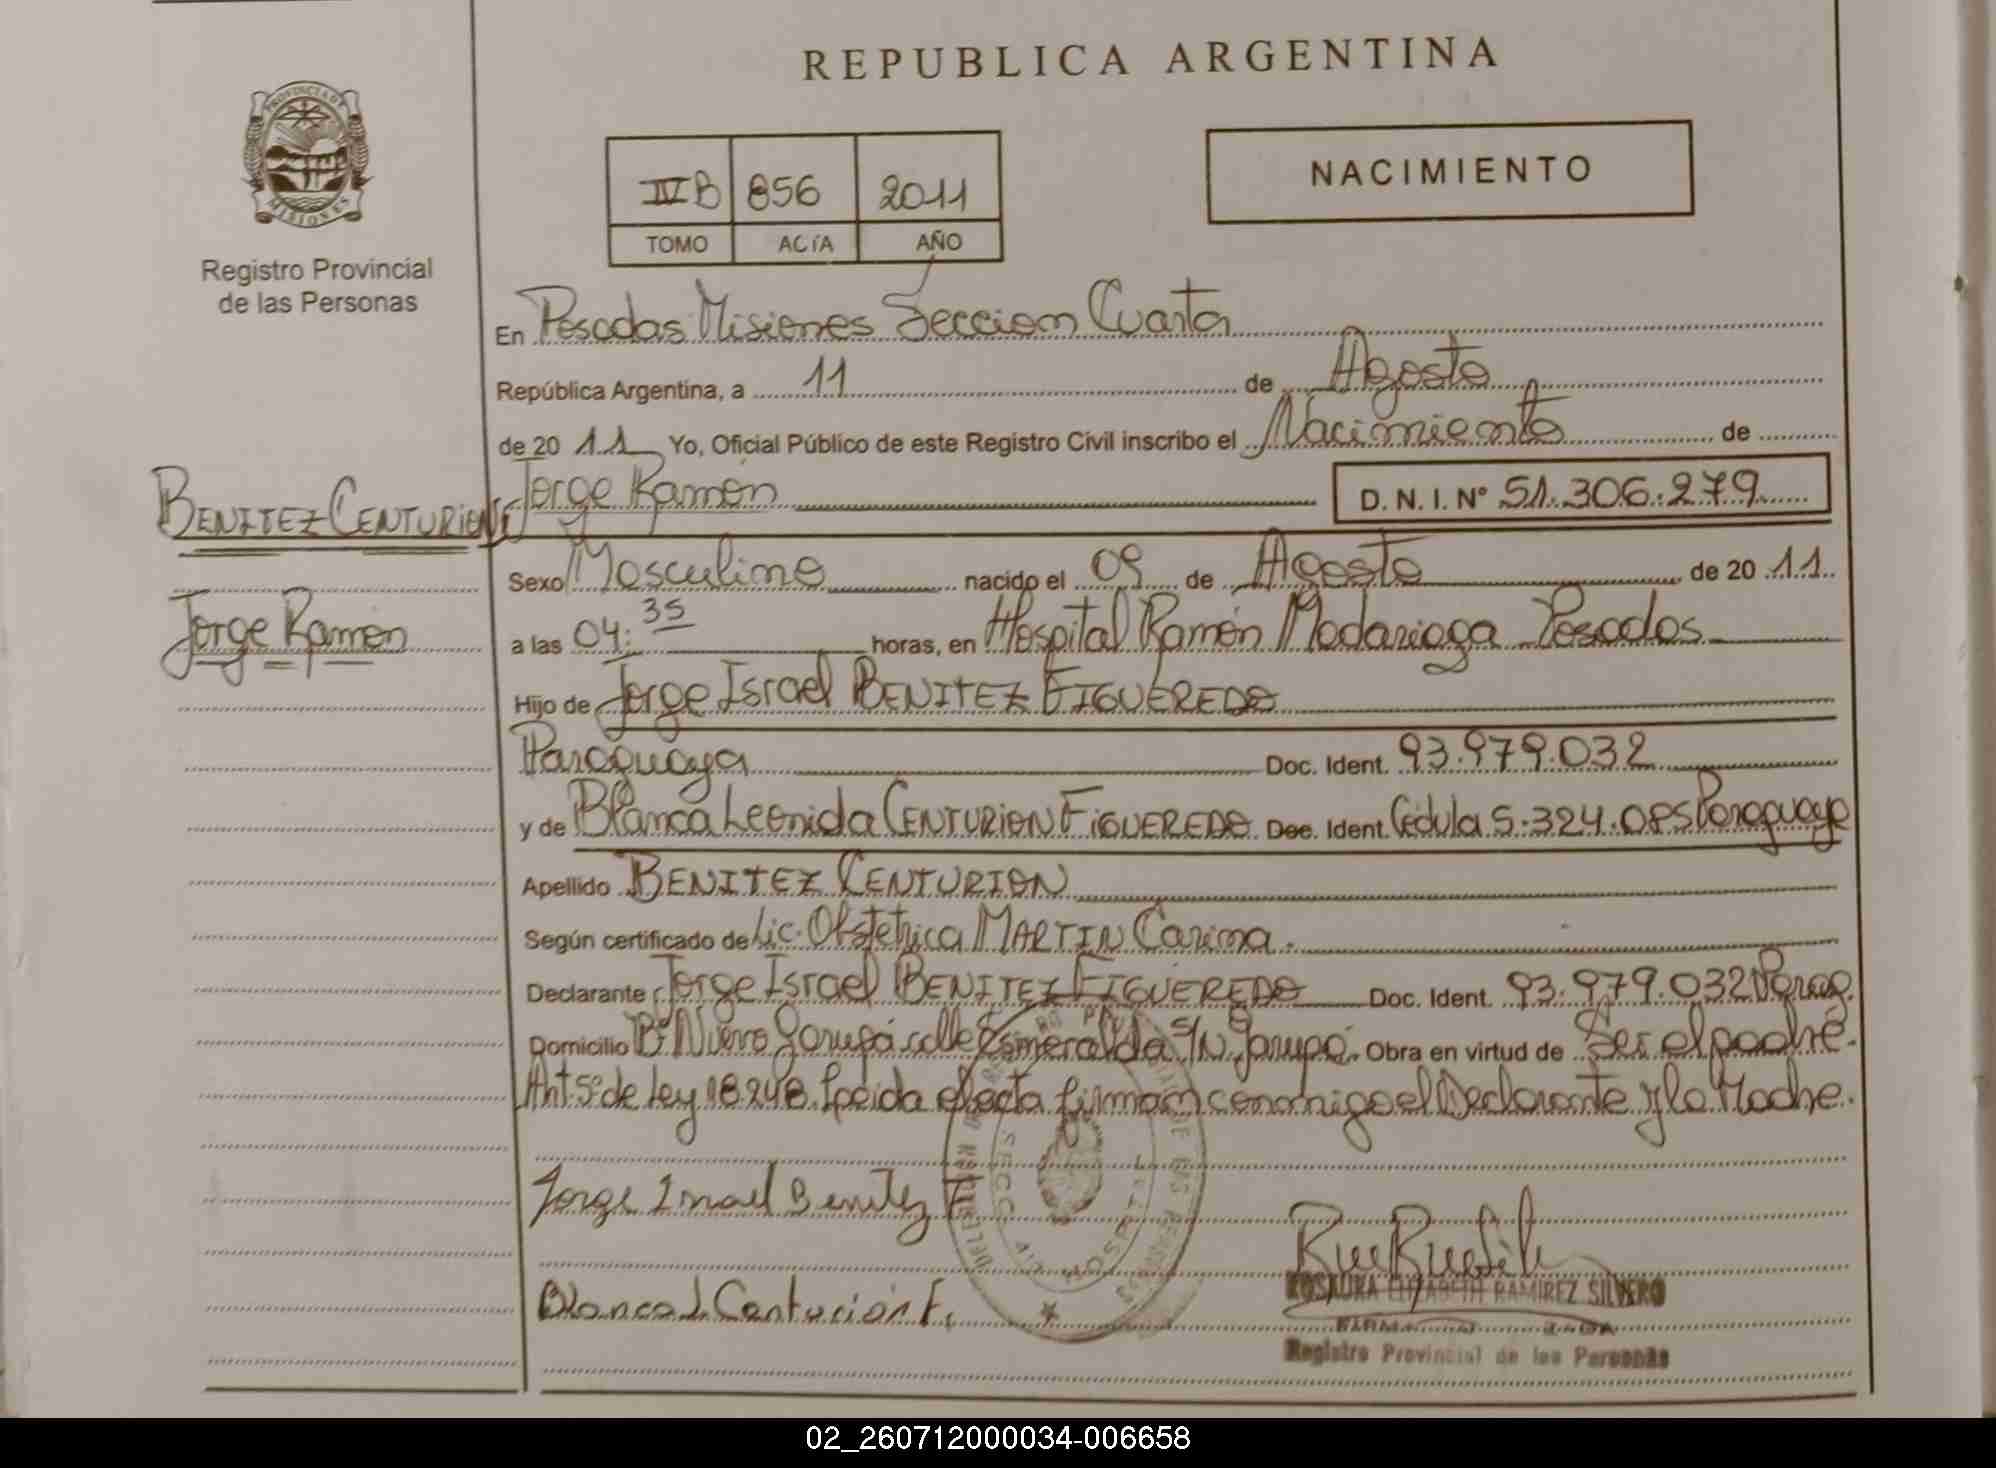 REPUBLICA ARGENTINA
PROVINCIA DE MISIONES
Registro Provincial
de las Personas
IVB 856 2011
TOMO ACTA AÑO
NACIMIENTO
En Posadas Misiones Seccion Cuarta
República Argentina, a 11 de Agosto
de 20 11 Yo, Oficial Público de este Registro Civil inscribo el Nacimiento de
BENITEZ CENTURION
Jorge Ramón D. N. I. Nº 51.306.279
Sexo Masculino nacido el 09 de Agosto de 20 11
Jorge Ramon
a las 04:35 horas, en Hospital Ramón Madariaga Posadas
Hijo de Jorge Israel BENITEZ FIGUEREDO
Paraguaya Doc. Ident. 93.979.032
y de Blanca Leonida CENTURION FIGUEREDO Doc. Ident. Cédula 5.324.085 Paraguaya
Apellido BENITEZ CENTURION
Según certificado de Lic. Obstetrica MARTIN Carina.
Declarante Jorge Israel BENITEZ FIGUEREDO Doc. Ident. 93.979.032 Parag.
Domicilio Bº Nuevo Garupá calle Esmeralda S/N Garupá. Obra en virtud de Ser el padre.
Art. 5º de Ley 18248. Leida el acta firman conmigo el Declarante y la Madre.
Jorge Israel Benitez F
Blanca L Centurión F.
SECC. 4ta HOSPITAL
ROSAURA ELIZABETH RAMIREZ SILVERO
Registro Provincial de las Personas
02_260712000034-006658